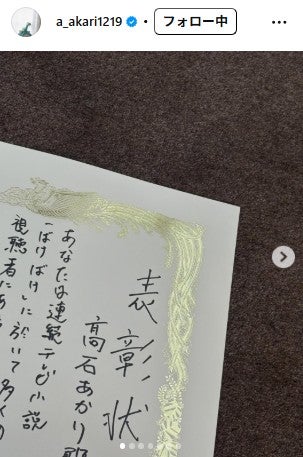 a_akari1219
フォロー中
表彰状
高石あかり殿
あなたは連続テレビ小説
「ばけばけ」に於いて多くの
視聴者に